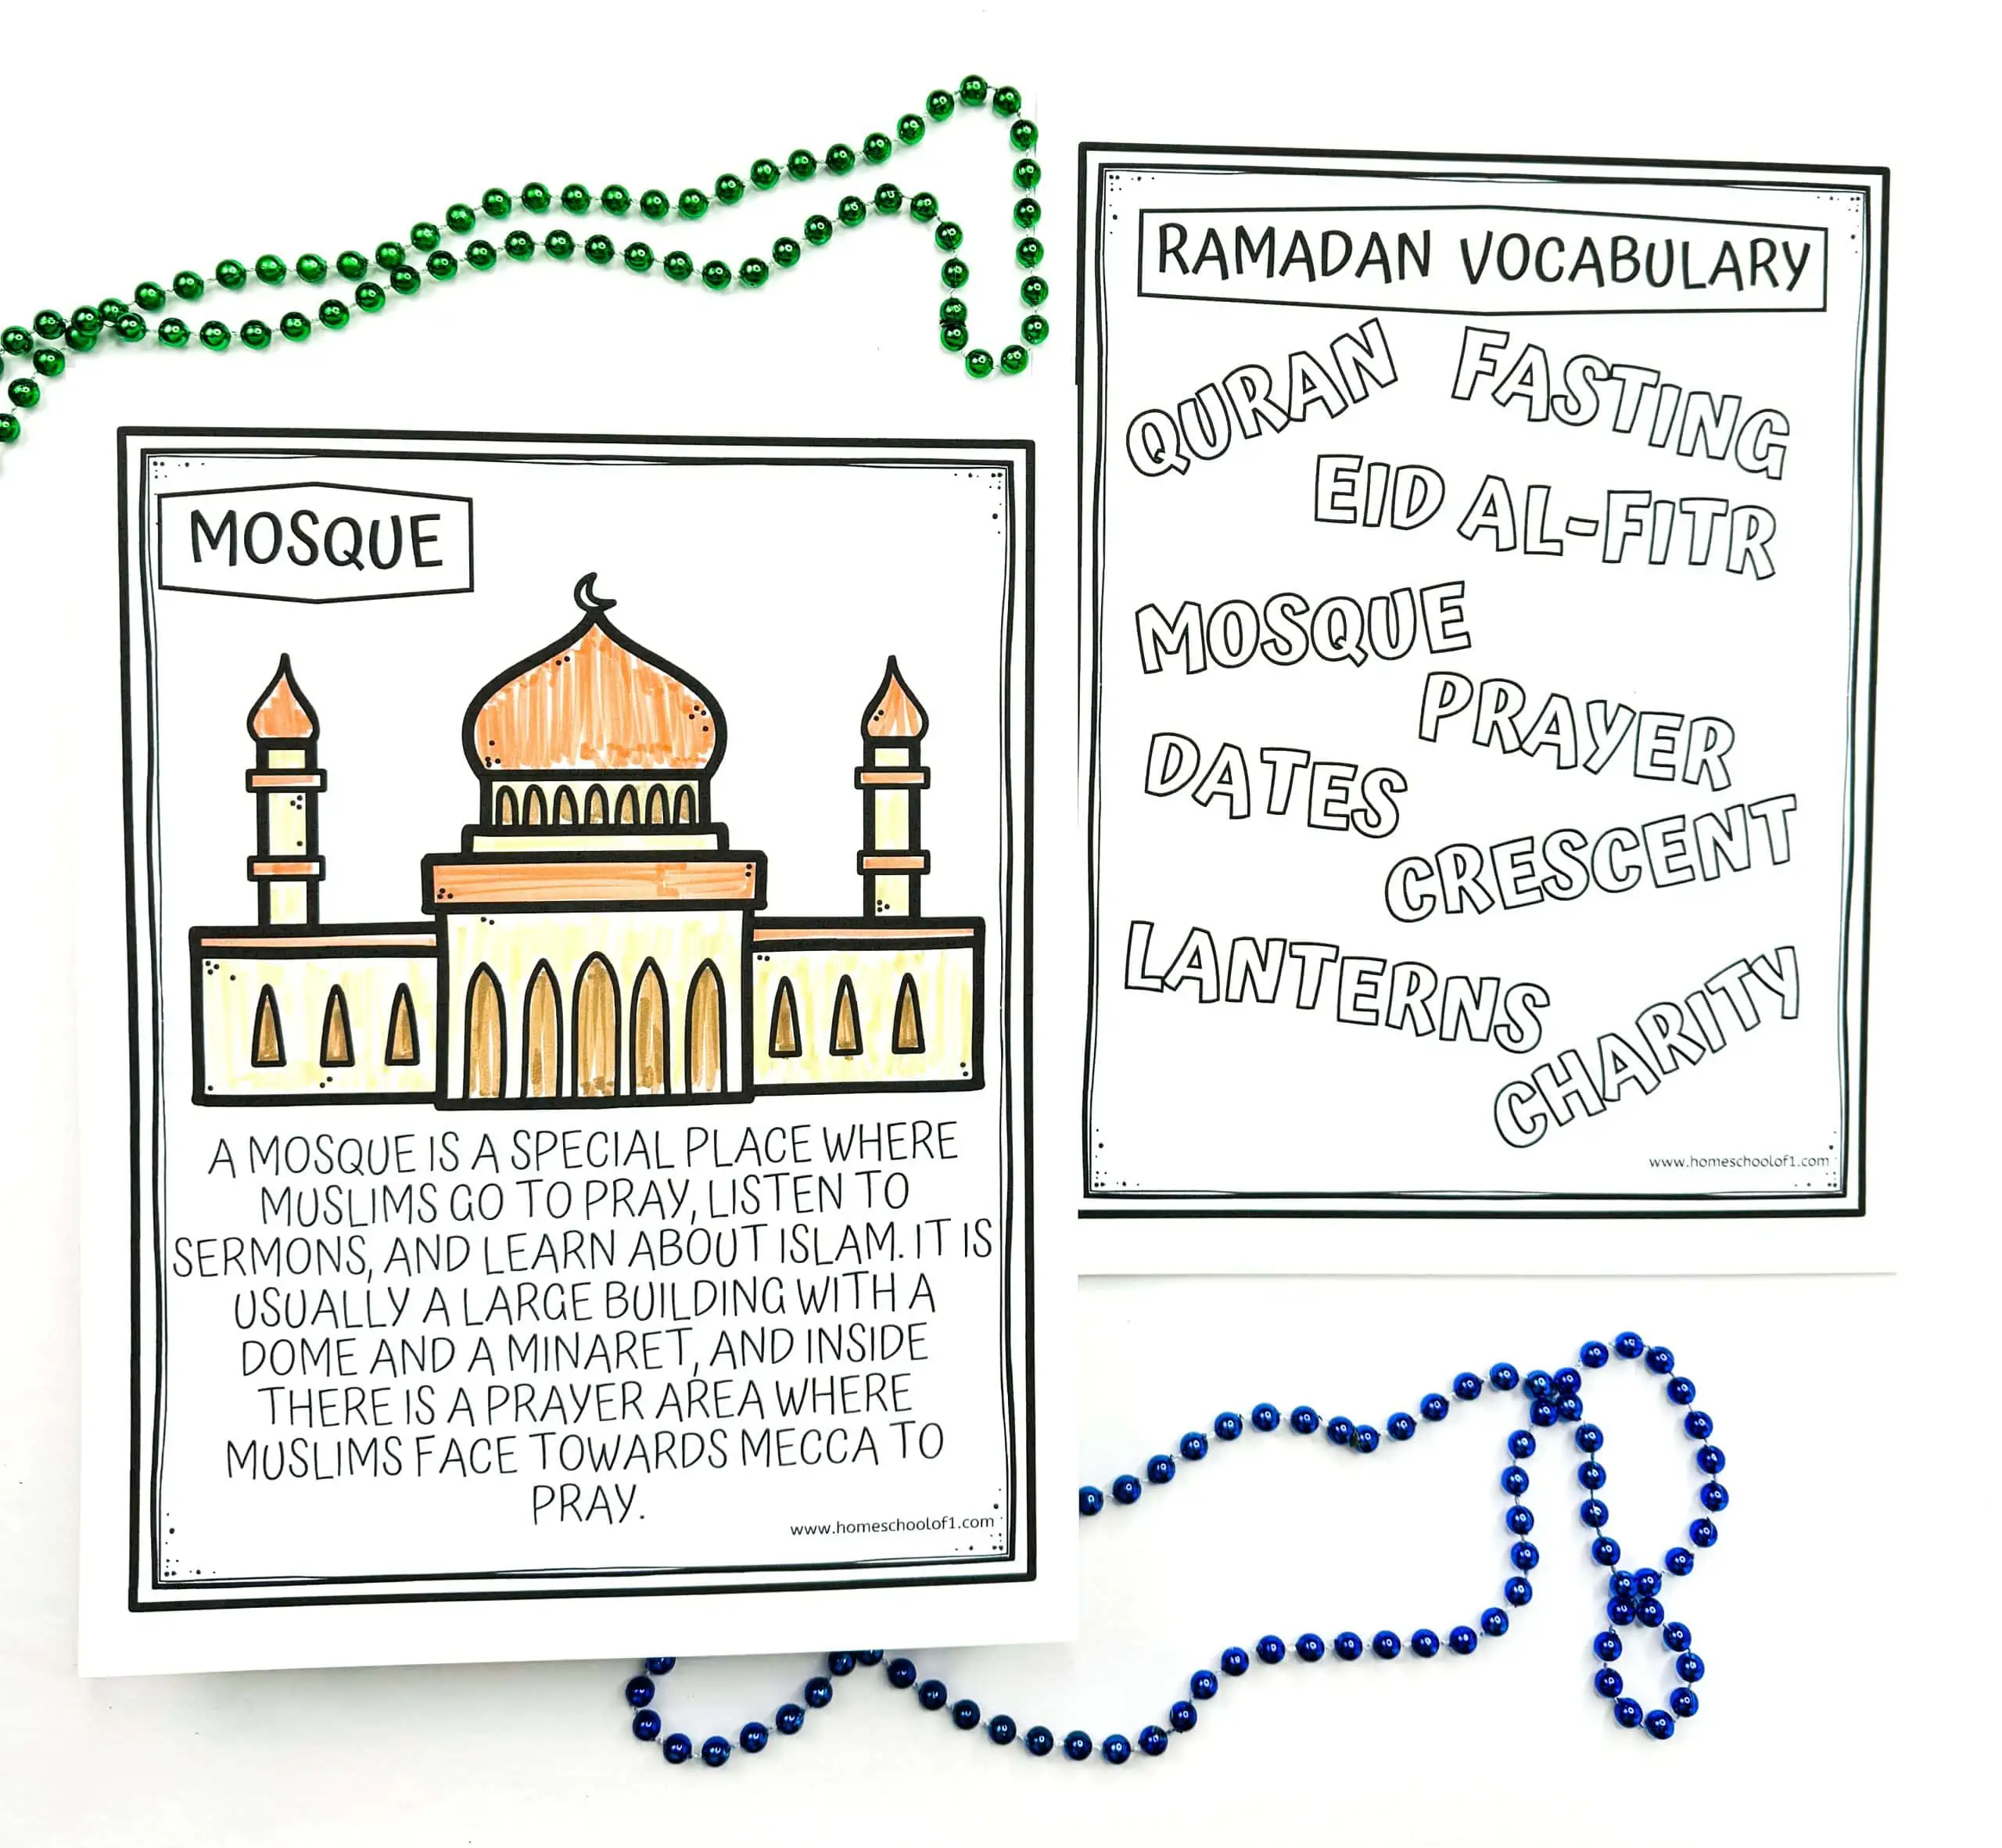 MOSQUE
A MOSQUE IS A SPECIAL PLACE WHERE
MUSLIMS GO TO PRAY, LISTEN TO
SERMONS, AND LEARN ABOUT ISLAM. IT IS
USUALLY A LARGE BUILDING WITH A
DOME AND A MINARET, AND INSIDE
THERE IS A PRAYER AREA WHERE
MUSLIMS FACE TOWARDS MECCA TO
PRAY.
www.homeschoolof1.com
RAMADAN VOCABULARY
QURAN
FASTING
EID AL-FITR
MOSQUE
PRAYER
DATES
CRESCENT
LANTERNS
CHARITY
www.homeschoolof1.com